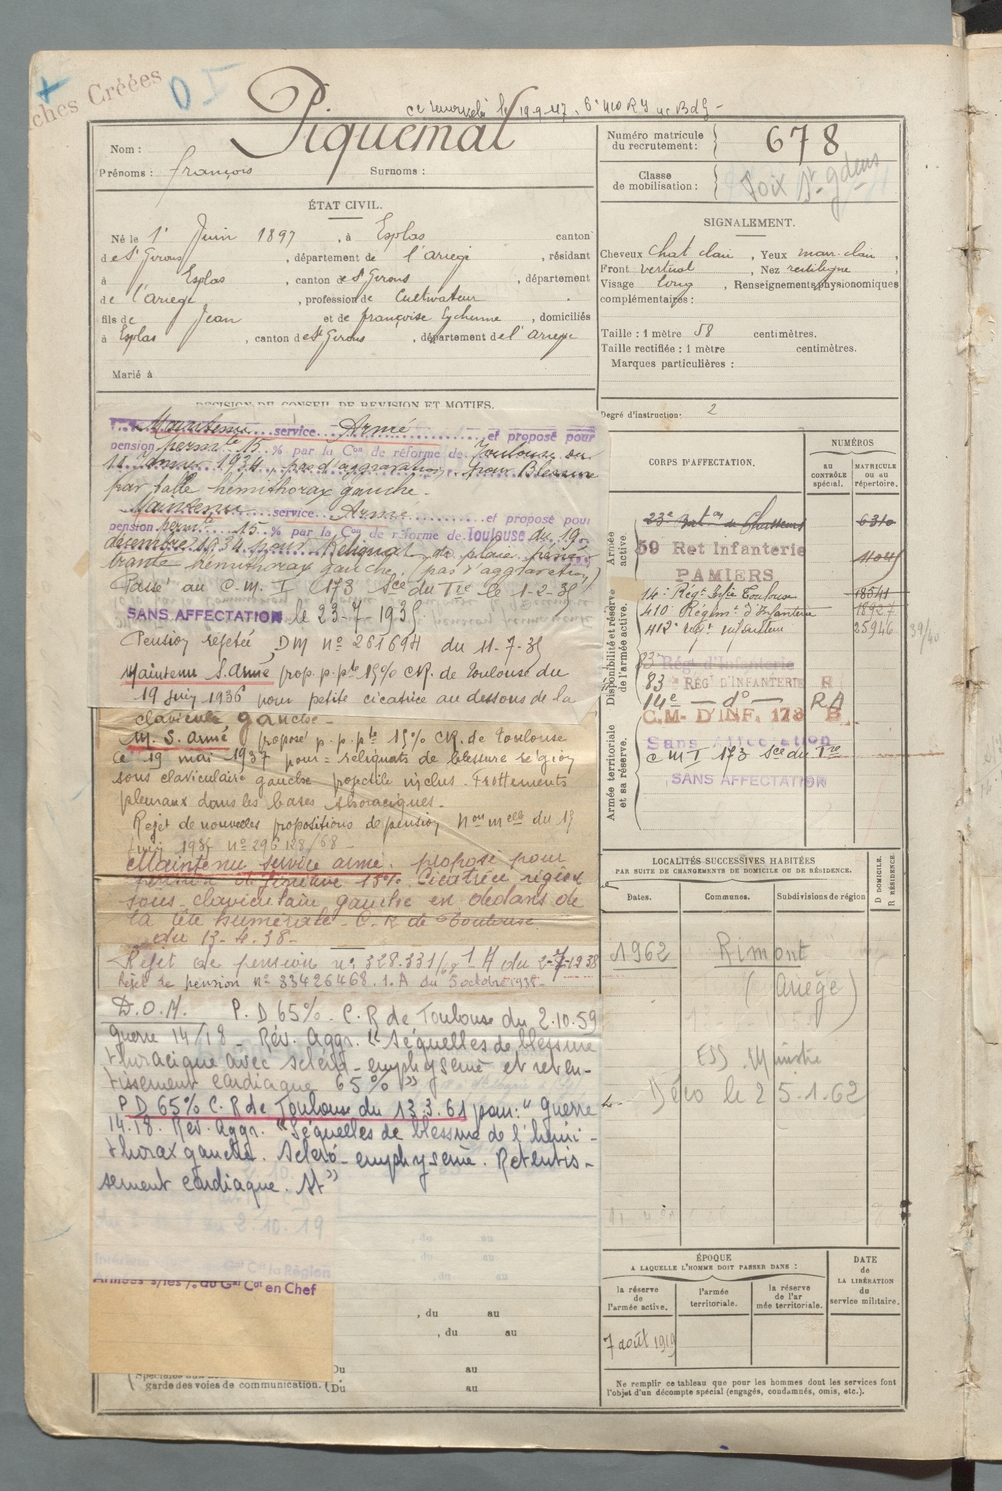 ches Créées
O I
Piquemal
Nom :
Prénoms : François Surnoms :
Numéro matricule du recrutement : 678
Classe de mobilisation : Foix St gdens
ÉTAT CIVIL.
Né le 1r Juin 1897, à Esplas canton
de St Girons, département de l'ariège, résidant
à Esplas, canton de St Girons, département
de l'ariège, profession de Cultivateur
fils de Jean et de françoise, domiciliés
à Esplas, canton de St Girons, département de l'ariege
Marié à
SIGNALEMENT.
Cheveux chat clair, Yeux marr. clair,
Front vertical, Nez rectiligne
Visage long, Renseignements physionomiques
complémentaires :
Taille : 1 mètre 58 centimètres.
Taille rectifiée : 1 mètre centimètres.
Marques particulières :
Degré d'instruction : 2
DÉCISION DU CONSEIL DE RÉVISION ET MOTIFS.
Maintenu service Armé et proposé pour
pension permte 15 % par la Con de réforme de Toulouse du
1934 pas d'aggravation, pour Blessure
par balle hémithorax gauche.
Maintenu service Armé et proposé pour
pension permte 15 % par la Con de réforme de Toulouse du 19
décembre 1934 pour Reliquat de plaie
hémithorax gauche (pas d'aggravation)
Passé au C.M. I 173 Sce du Tre le 1-2-35
SANS AFFECTATION le 23-7-1935
Pension rejetée DM no 261694 du 11-7-35
Maintenu S. Armé prop. p. pte 15% CR. de Toulouse du
19 juin 1936 pour petite cicatrice au dessous de la
clavicule gauche -
M. S. armé proposé p. p. pte 15% CR. de Toulouse
le 19 mai 1937 pour = reliquats de blessure région
sous claviculaire gauche projectile inclus. Frottements
pleuraux dans les bases thoraciques.
Rejet de nouvelles propositions de pension Non melle du 15
no 296128/68 -
Maintenu service armé. proposé pour
pension définitive 15% Cicatrice région
sous-claviculaire gauche en dedans de
la tête humérale - C.R de Toulouse
du 13-4-38 -
Rejet de pension no 328.331/68 1 A du 2-7-1938
Rejet de pension no 33426468.1.A du 5 octobre 1938-
D.O.M. P.D 65% - C.R de Toulouse du 2.10.59
Guerre 14/18 - Rév. Aggr. "Séquelles de blessure
thoracique avec scléro-emphysème et reten-
tissement cardiaque 65%"
P D 65% C.R de Toulouse du 13.3.61 pour : "Guerre
14.18. Rév. Aggr. "Séquelles de blessure de l'hémi-
thorax gauche. Scléro-emphysème. Retentis-
sement cardiaque. St"
2.10.19
Gal Ct la Région
Armées s/les /s du Gal Cdt en Chef
, du au
, du au
Du au
garde des voies de communication. Du au
CORPS D'AFFECTATION.
NUMÉROS
AU CONTRÔLE spécial.
MATRICULE OU AU répertoire.
Armée active.
Disponibilité et réserve de l'armée active.
Armée territoriale et sa réserve.
23e Baton de Chasseurs 6310
59 Ret Infanterie
PAMIERS
14e Régt Infie Toulouse 18541
410e Régimt d'Infanterie 18937
412e régt infanterie 25946 39/40
83 Rég d'Infanterie
83e RÉGt D'INFANTERIE R
14e — do — RA
C.M- D'INF. 173 B
Sans Affectation
C M I 173 Sce du Tre
SANS AFFECTATION
LOCALITÉS SUCCESSIVES HABITÉES
PAR SUITE DE CHANGEMENTS DE DOMICILE OU DE RÉSIDENCE.
Dates. Communes. Subdivisions de région
D DOMICILE. R RÉSIDENCE.
1962 Rimont
(Ariège)
Déco le 25.1.62
ÉPOQUE
A LAQUELLE L'HOMME DOIT PASSER DANS :
la réserve de l'armée active.
l'armée territoriale.
la réserve de l'ar mée territoriale.
DATE de LA LIBÉRATION du service militaire.
7 août 1919
Ne remplir ce tableau que pour les hommes dont les services font
l'objet d'un décompte spécial (engagés, condamnés, omis, etc.).